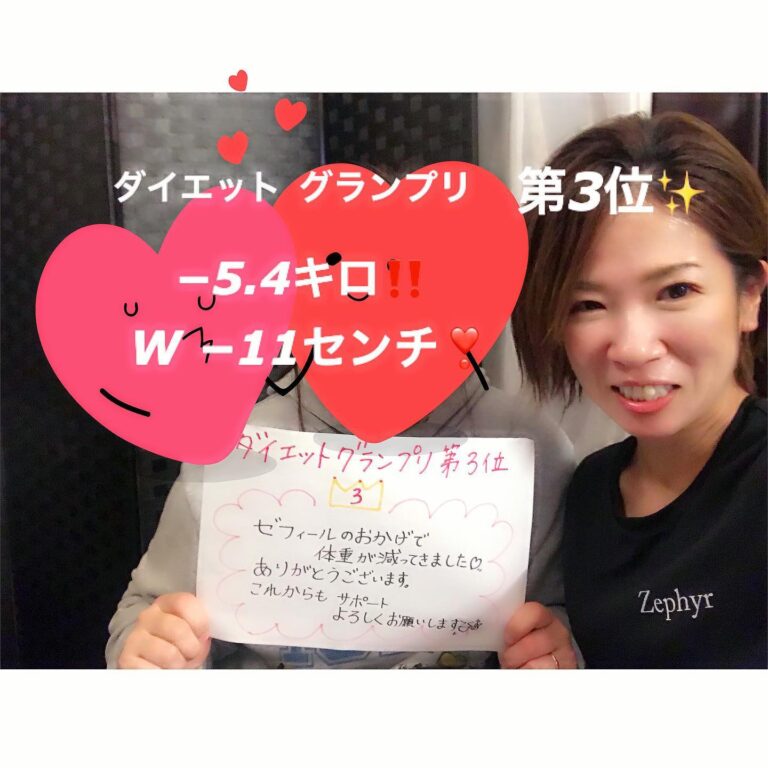 ダイエット グランプリ 第3位✨
−5.4キロ‼️
W −11センチ❣️
ダイエットグランプリ第3位
3
ゼフィールのおかげで
体重が減ってきました♡
ありがとうございます。
これからも サポート
よろしくお願いします
Zephyr